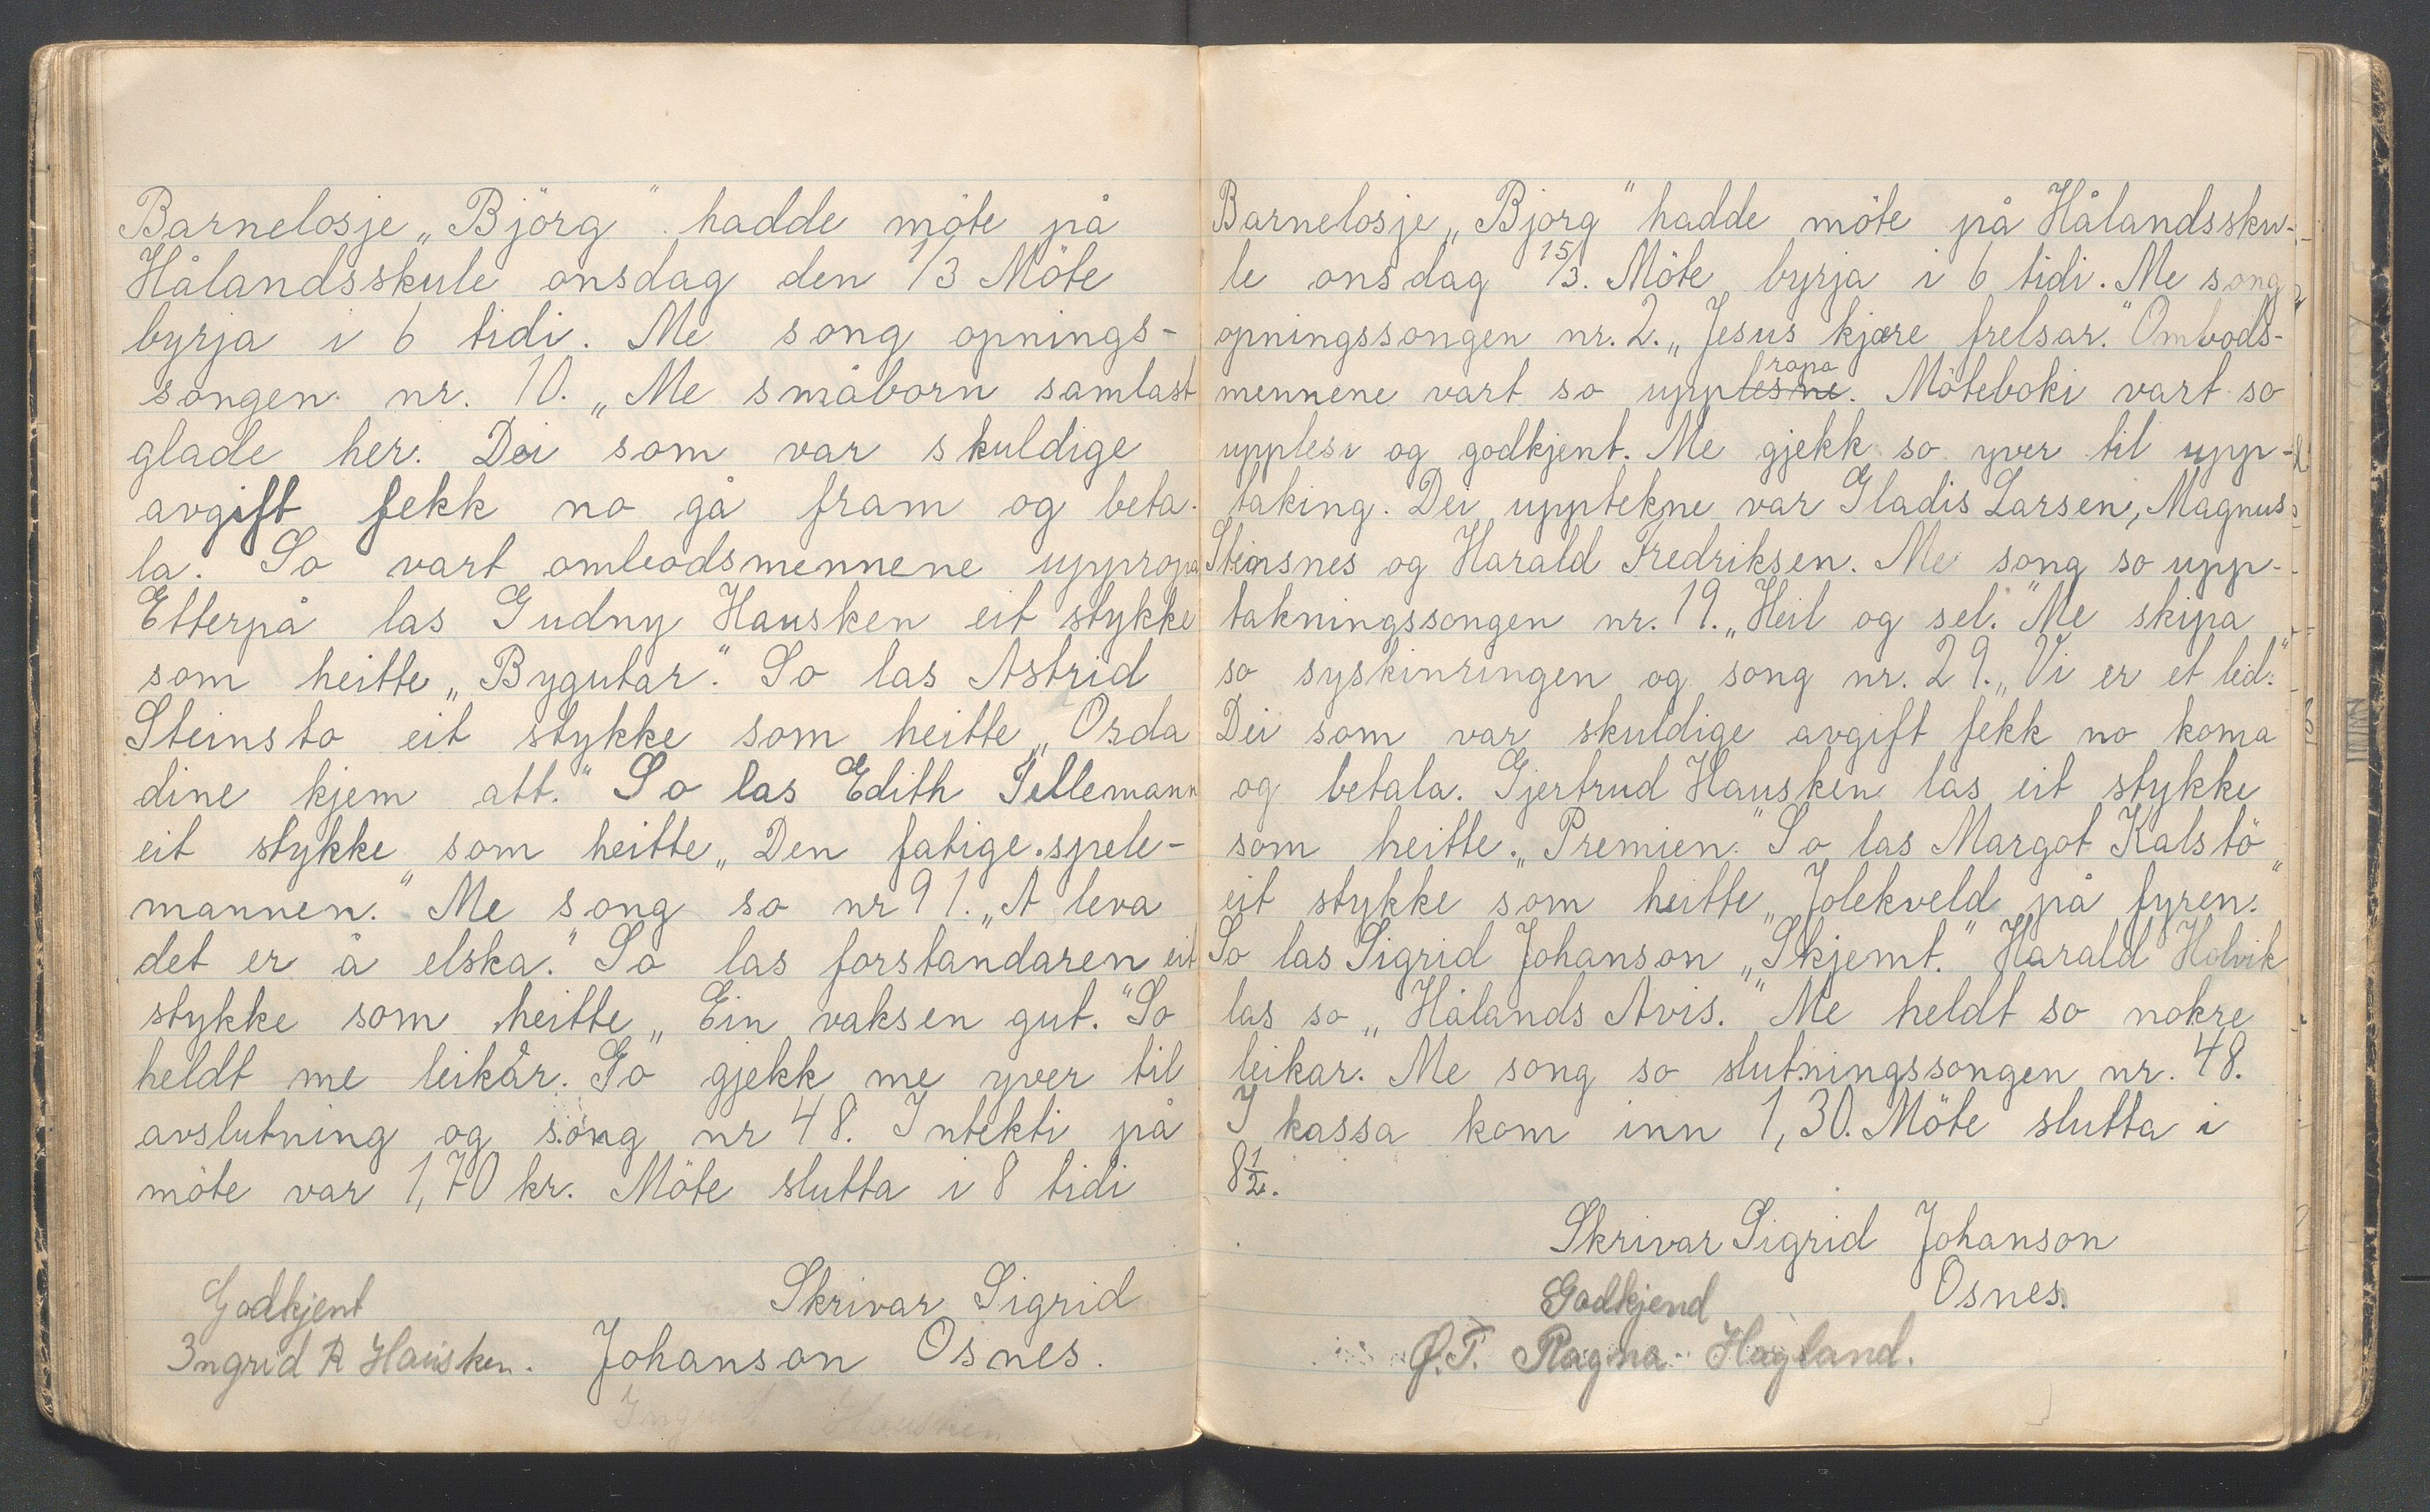 Barnelosje „Björg" hadde möte på
Hålandsskule onsdag den 1/3 Möte
byrja i 6 tidi. Me song opnings-
songen nr. 10. „Me småborn samlast
glade her." Dei som var skuldige
avgift fekk no gå fram og beta-
la. So vart ombodsmennene uppropa
Etterpå las Gudny Hausken eit stykke
som heitte „Bygutar". So las Astrid
Steinsto eit stykke som heitte „Orda
dine kjem att." So las Edith Tellemann
eit stykke som heitte „Den fatige spele-
mannen." Me song so nr 91. „A leva
det er å elska." So las forstandaren eit
stykke som heitte „Ein vaksen gut." So
heldt me leikar. So gjekk me yver til
avslutning og song nr 48. Intekti på
möte var 1,70 kr. Möte slutta i 8 tidi
Skrivar Sigrid
Johanson Osnes.
Godkjent
Ingrid R Hausken.
Ingrid Hausken
Barnelosje „Bjorg" hadde möte på Hålandssku-
le onsdag 15/3. Möte byrja i 6 tidi. Me song
opningssongen nr. 2. „Jesus kjære frelsar." Ombods-
mennene vart so upplesne ropa. Möteboki vart so
upplesi og godkjent. Me gjekk so yver til upp-
taking. Dei upptekne var Gladis Larsen, Magnus
Steinsnes og Harald Fredriksen. Me song so upp-
takningssongen nr. 19. „Heil og sel." Me skipa
so syskinringen og song nr. 29. „Vi er et led."
Dei som var skuldige avgift fekk no koma
og betala. Gjertrud Hausken las eit stykke
som heitte. „Premien." So las Margot Kalstö
eit stykke som heitte „Jolekveld på fyren."
So las Sigrid Johanson „Skjemt." Harald Holvik
las so „Hålands Avis." Me heldt so nokre
leikar. Me song so slutningssongen nr. 48.
I kassa kom inn 1,30. Möte slutta i
8 1/2.
Skrivar Sigrid Johanson
Osnes.
Godkjend
Ø.T. Ragna Hagland.